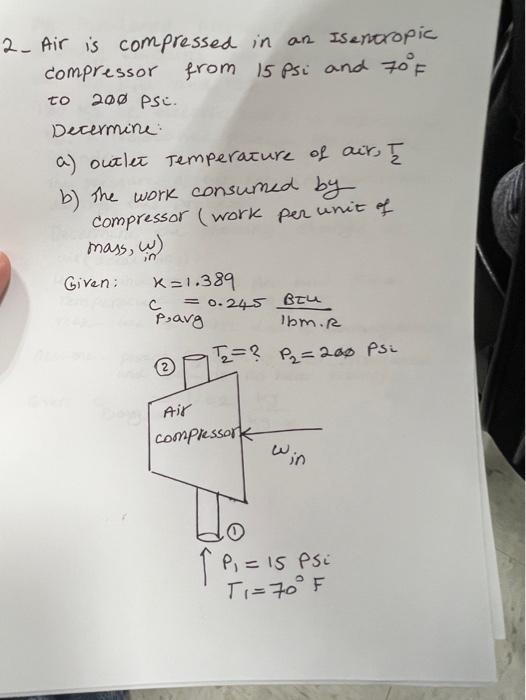 2- Air is compressed in an Isentropic
compressor from 15 Psi and 70°F
to 200 psi.
Determine:
a) outlet Temperature of air, T2
b) The work consumed by
compressor (work per unit of
mass, win)
Given: K = 1.389
Cp,avg = 0.245 BTU/lbm.R
② T2 = ? P2 = 200 Psi
Air
compressor
win
①
P1 = 15 Psi
T1 = 70° F